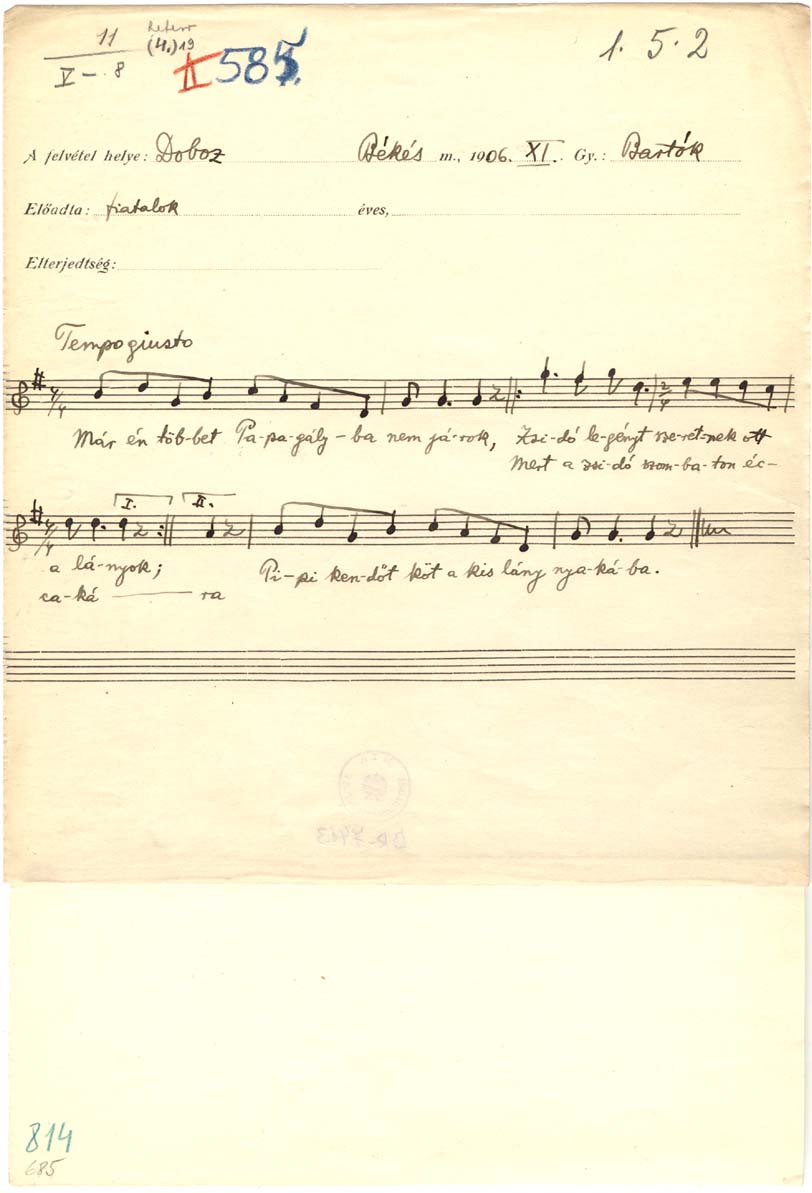 11
(4.)19
V – 8
II 585
1. 5. 2
A felvétel helye: Doboz Békés m., 1906. XI. Gy.: Bartók
Előadta: fiatalok éves,
Elterjedtség:
Tempo giusto
4/4 2/4
Már én töb-bet Pa-pa-gály-ba nem já-rok, Zsi-dó le-gényt sze-ret-nek ott
Mert a zsi-dó szom-ba-ton éc-
4/4 I. II.
a lá-nyok; Pi-pi ken-dőt köt a kis lány nya-ká-ba.
ca-ká — ra
814
685